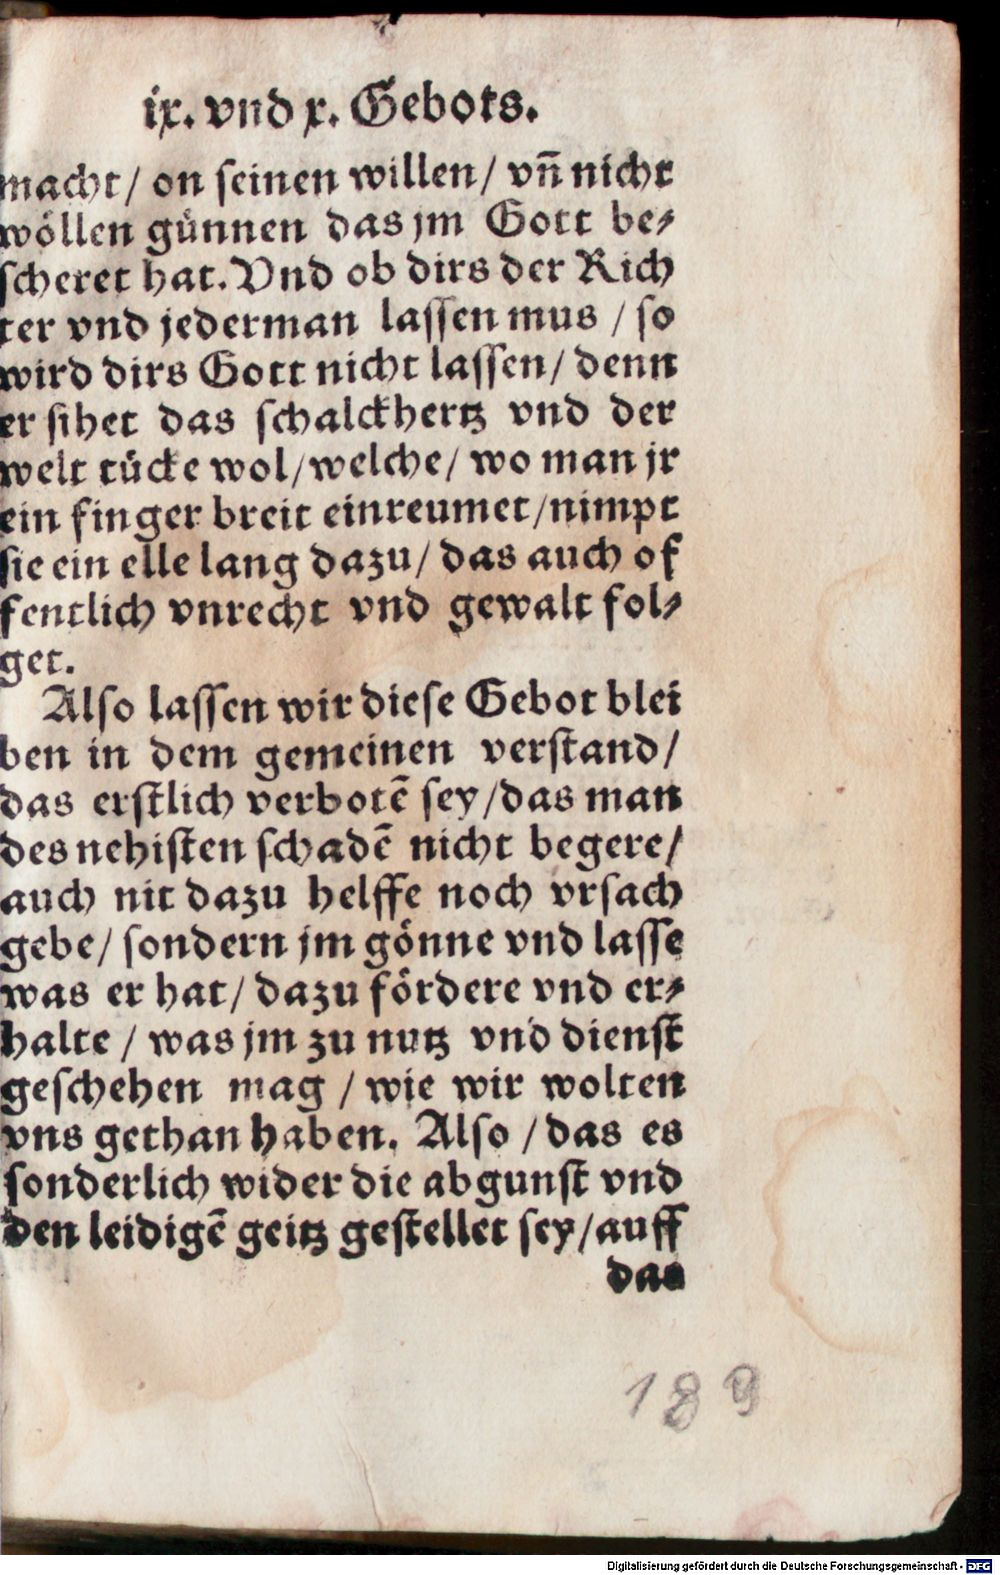 ix. vnd x. Gebots.
macht/ on seinen willen/ vñ nicht
wöllen günnen das jm Gott be⸗
scheret hat. Vnd ob dirs der Rich
ter vnd jederman lassen mus / so
wird dirs Gott nicht lassen/ denn
er sihet das schalckhertz vnd der
welt tücke wol/welche/ wo man jr
ein finger breit einreumet/nimpt
sie ein elle lang dazu/ das auch of
fentlich vnrecht vnd gewalt fol⸗
get.
Also lassen wir diese Gebot blei
ben in dem gemeinen verstand/
das erstlich verbotē sey/das man
des nehisten schadē nicht begere/
auch nit dazu helffe noch vrsach
gebe/ sondern jm gönne vnd lasse
was er hat/ dazu fördere vnd er⸗
halte / was jm zu nutz vnd dienst
geschehen mag / wie wir wolten
vns gethan haben. Also / das es
sonderlich wider die abgunst vnd
den leidigē geitz gestellet sey/auff
das
189
Digitalisierung gefördert durch die Deutsche Forschungsgemeinschaft - DFG